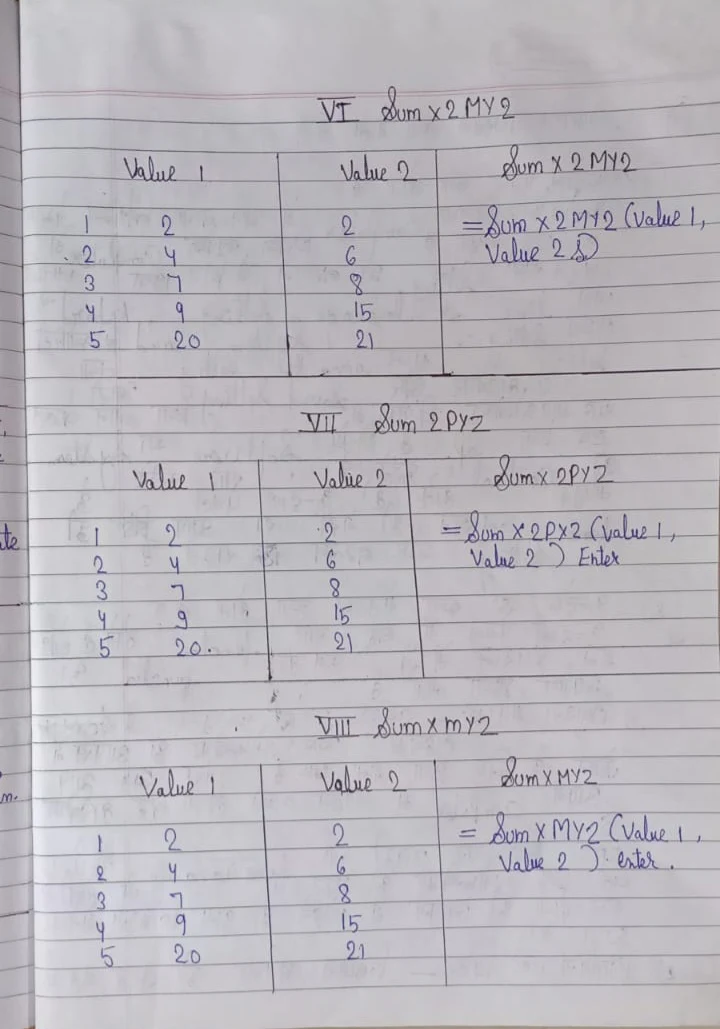 VI Sum x 2 MY2
Value 1 Value 2 Sum x 2 MY2
1 2 2 = Sum x 2 MY2 (Value 1,
2 4 6 Value 2
3 7 8
4 9 15
5 20 21
VII Sum 2PYZ
Value 1 Value 2 Sum x 2PYZ
1 2 2 = Sum x 2PX2 (Value 1,
2 4 6 Value 2 ) Enter
3 7 8
4 9 15
5 20. 21
VIII Sum x MY2
Value 1 Value 2 Sum x MYZ
1 2 2 = Sum x MY2 (Value 1,
2 4 6 Value 2 ) enter.
3 7 8
4 9 15
5 20 21